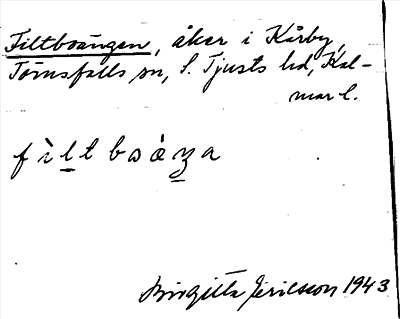 Filtboängen, åker i Kårby,
Törnsfalls sn, S. Tjusts hd, Kal-
mar l.
Birgitta Jerilsson 1943